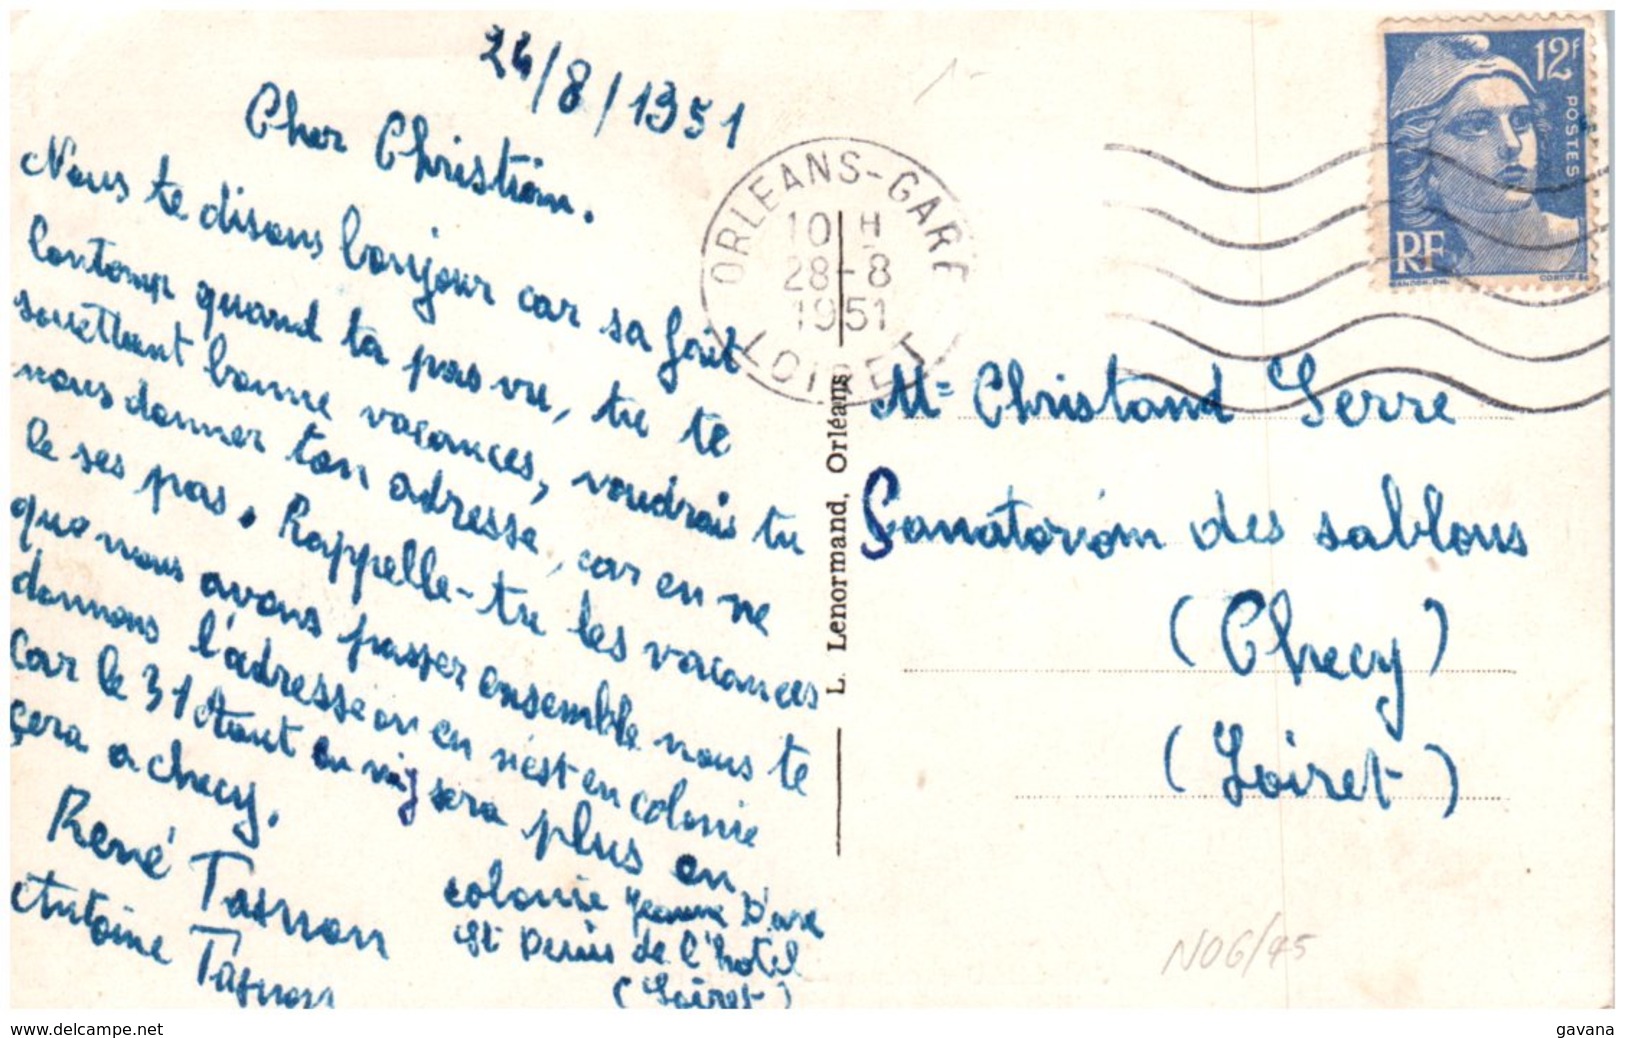 24/8/1951
Cher Christian.
Nous te disons bonjour car sa fait
lontemp quand ta pas vu, tu te
souettant bonne vacances, voudrais tu
nous donner ton adresse, car en ne
le ses pas. Rappelle-tu les vacances
que nous avons passer ensemble nous te
donnons l'adresse ou en n'est en colonie
Car le 31 Aout on sera plus en
çera a checy.
René Tasnon
Antoine Tasnon
colonie Jeanne D'arc
St Denis de l'hotel
(Loiret)
ORLEANS-GARE
10 H
28-8
1951
LOIRET
L. Lenormand, Orléans
12F
POSTES
RF
Mr Christand Serre
Sanatoriom des sablons
(Checy)
(Loiret)
1-
NOG/45
www.delcampe.net
gavana